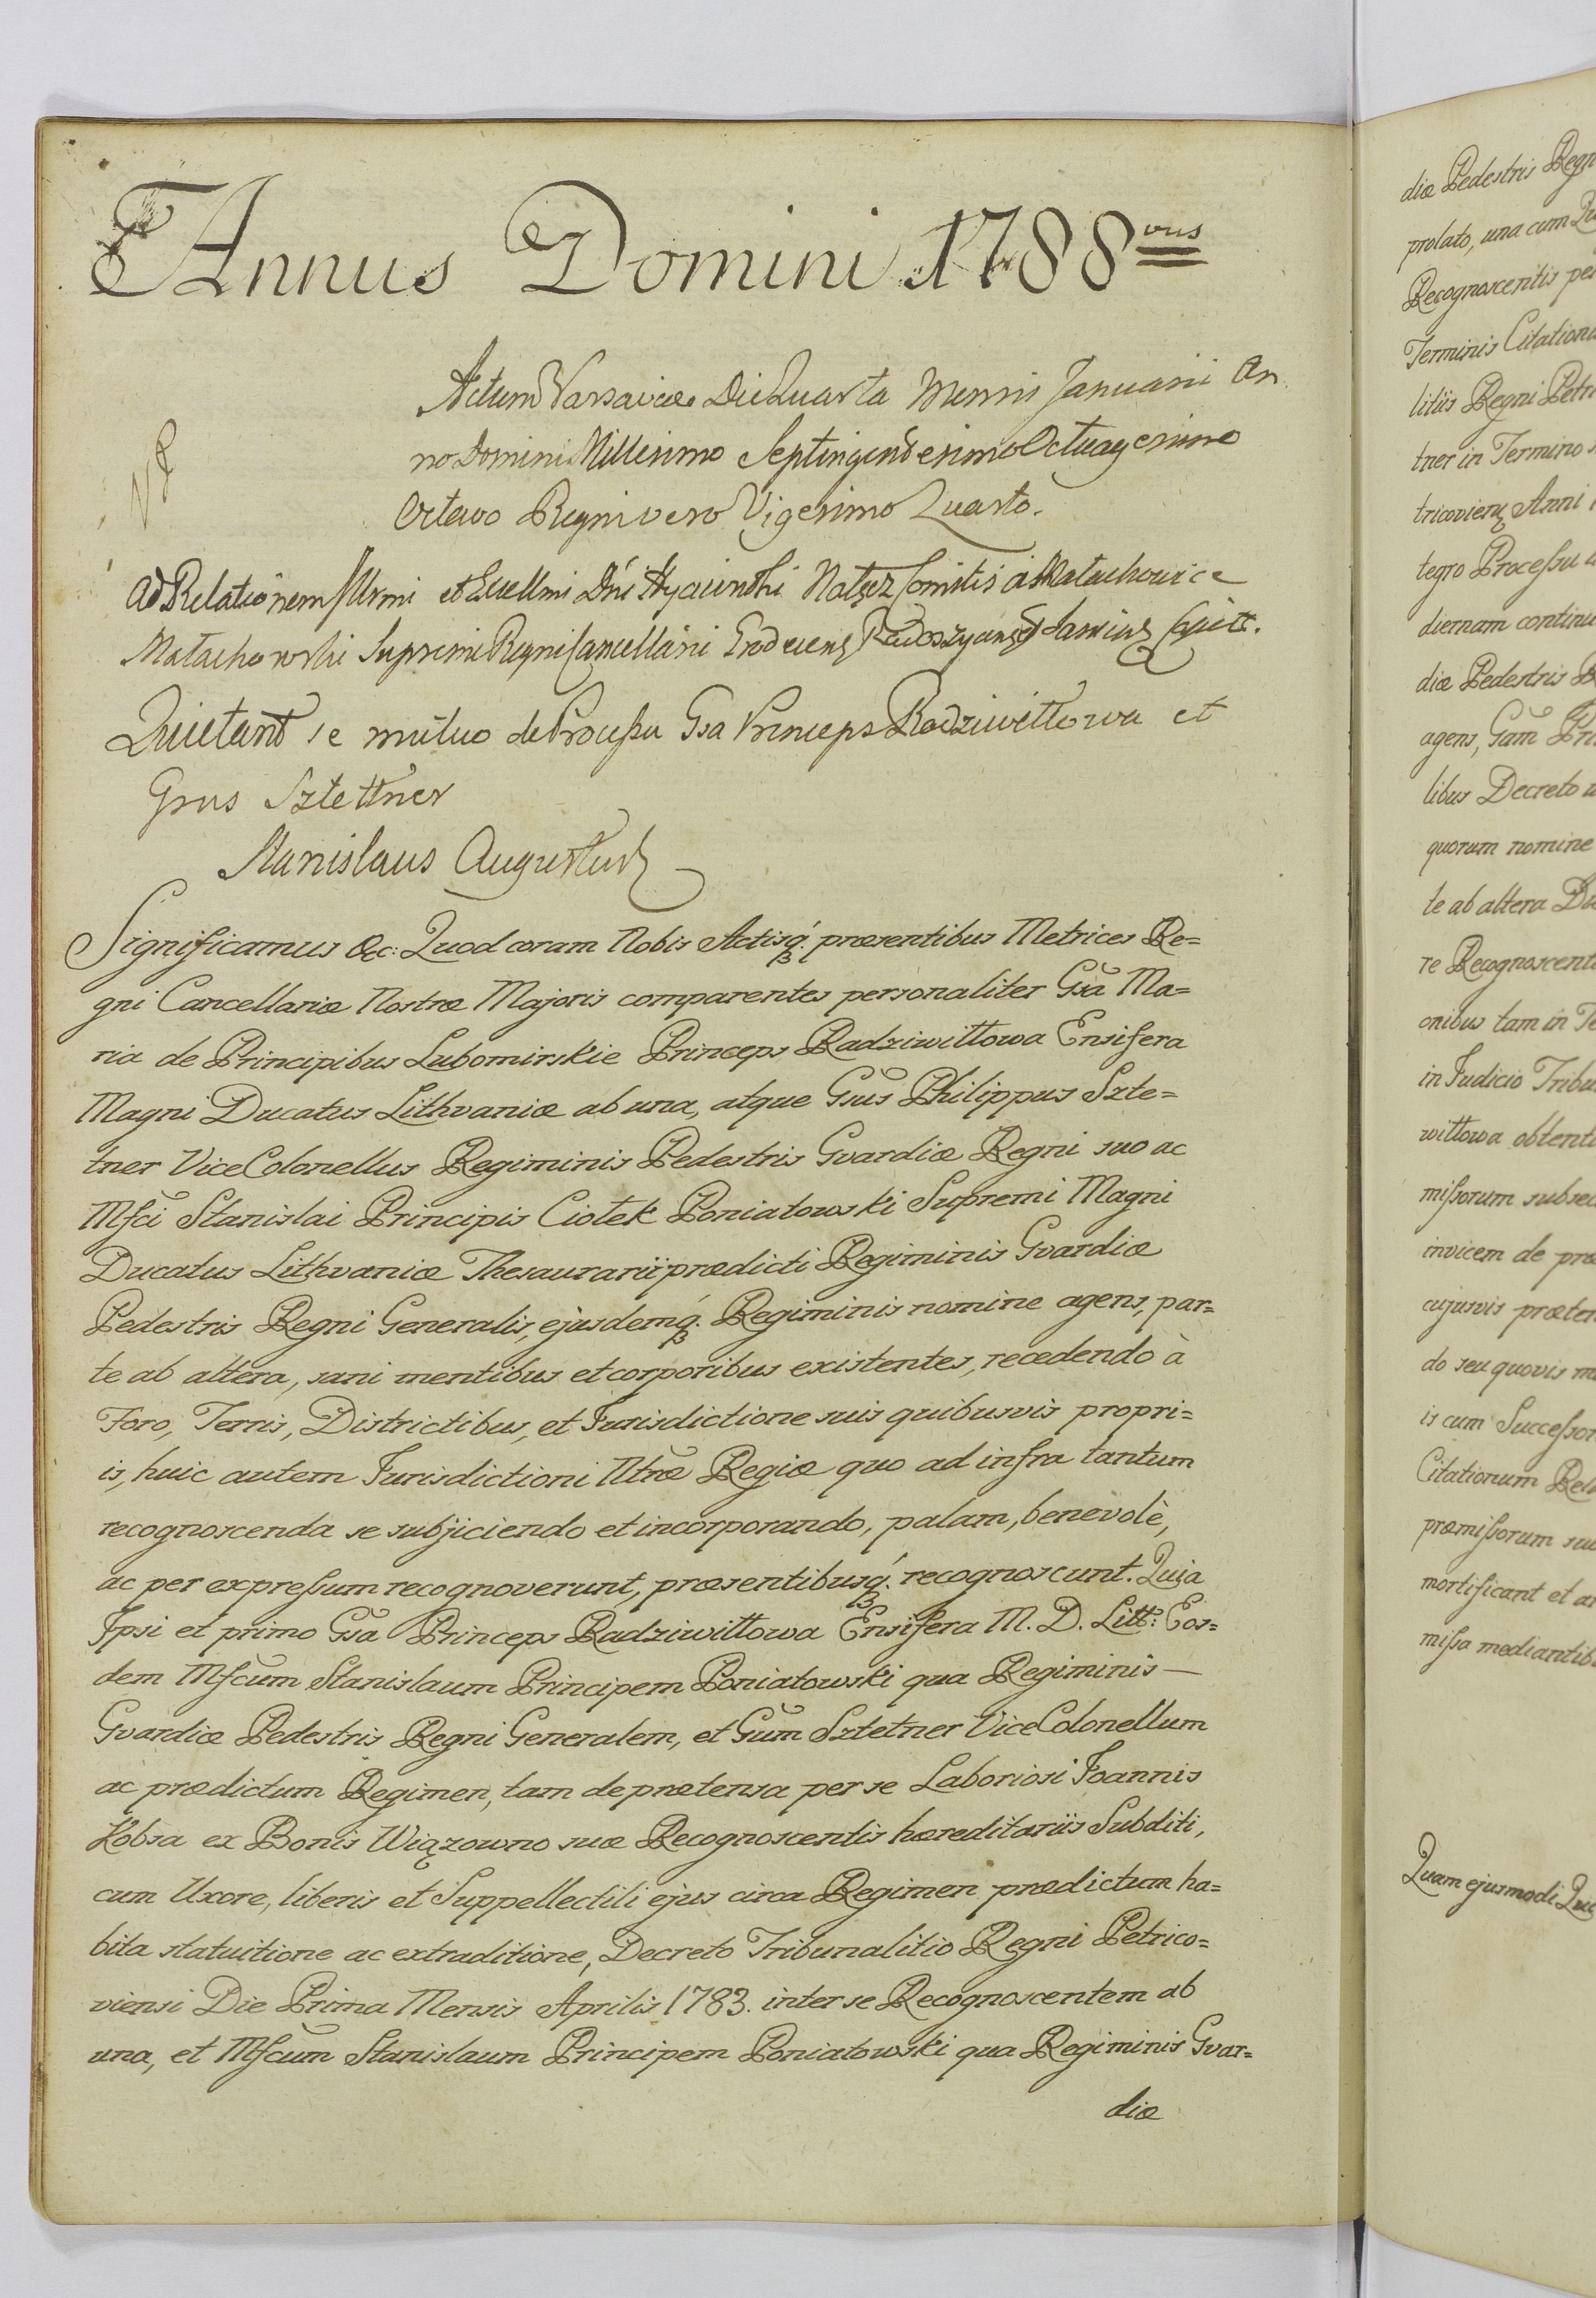 Annus Domini 1788vus
Actum Varsaviæ Die Quarta Mensis Januarii An
no Domini Millesimo Septingentesimo Octuagesimo
Octavo Regni vero Vigesimo Quarto.
NB
Ad Relationem Illrmi et Excellmi Dni Hyacinthi Nałęcz Comitis à Małachowice
Małachowski Supremi Regni Cancellarii Grodecens Radoszycens Capit.
Quietant se mutuo de Processu Gsa Princeps Radziwiłłowa et
Grus Sztettner
Stanislaus Augustus
Significamus &c: Quod coram Nobis Actisq. præsentibus Metrices Re=
gni Cancellariæ Nostræ Majoris comparentes personaliter Gsa Ma=
ria de Principibus Lubomirskie Princeps Radziwiłłowa Ensifera
Magni Ducatus Lithvaniæ ab una, atque Gsus Philippus Szte=
tner ViceColonellus Regiminis Pedestris Gvardiæ Regni suo ac
Mfci Stanislai Principis Ciołek Poniatowski Supremi Magni
Ducatus Lithvaniæ Thesaurarii prædicti Regiminis Gvardiæ
Pedestris Regni Generalis, ejusdemq. Regiminis nomine agens, par=
te ab altera, sani mentibus et corporibus existentes, recedendo à
Foro, Terris, Districtibus, et Jurisdictione suis quibusvis propri=
is, huic autem Jurisdictioni Ntræ Regiæ quo ad infra tantum
recognoscenda se subjiciendo et incorporando, palam, benevolè,
ac per expressum recognoverunt, præsentibusq. recognoscunt. Quia
Ipsi et primo Gsa Princeps Radziwiłłowa Ensifera M. D. Litt: Eos=
dem Mfcum Stanislaum Principem Poniatowski qua Regiminis —
Gvardiæ Pedestris Regni Generalem, et Gum Sztetner ViceColonellum
ac prædictum Regimen, tam de prætensa per se Laboriosi Joannis
Kobsa ex Bonis Wiązowno suæ Recognoscentis hæreditariis Subditi,
cum Uxore, liberis et Suppellectili ejus circa Regimen prædictum ha=
bita statuitione ac extraditione, Decreto Tribunalitio Regni Petrico=
viensi Die Prima Mensis Aprilis 1783. inter se Recognoscentem ab
una, et Mfcum Stanislaum Principem Poniatowski qua Regiminis Gvar=
diæ
diæ Pedestris
prolato, una cum
Recognoscentis
Terminis
litiis Regni
tner in Termino
Anni
tegro Processu
diernam
diæ Pedestris
agens, Gam
libus Decreto
quorum nomine
te ab altera
re
onibus tam in
in Judicio
wiłłowa
missorum
invicem de
cujusvis
do seu quovis
is cum
Citationum
præmissorum
mortificant et
missa
Quam ejusmodi